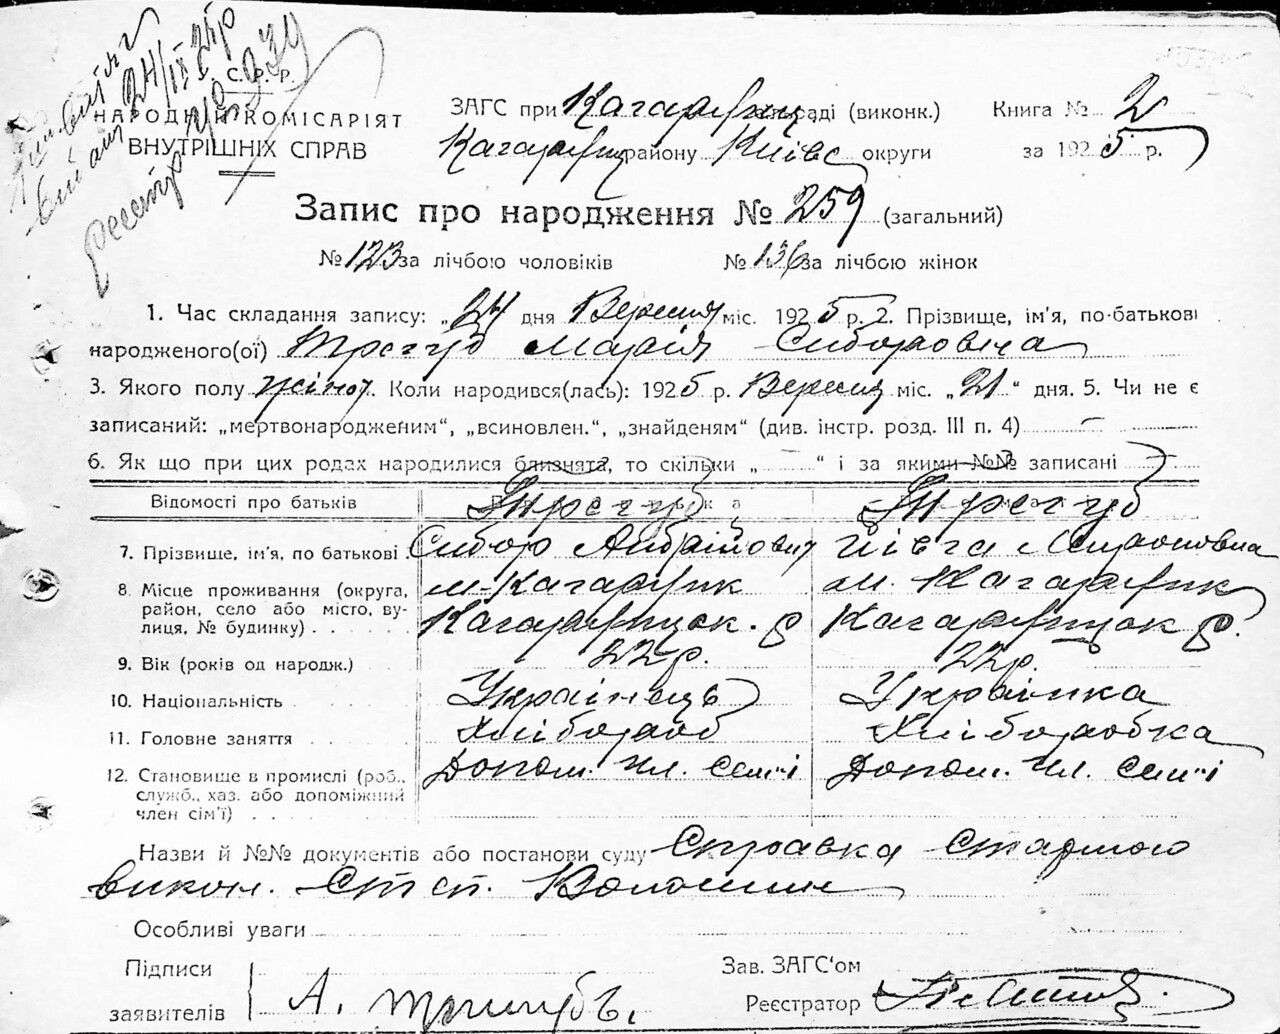 С. Р. Р.
НАРОДНІЙ КОМІСАРІЯТ
ВНУТРІШНІХ СПРАВ
ЗАГС при Кагарлиц. раді (виконк.)
Кагарлиц району Київс округи
Книга № 2
за 1925 р.
Запис про народження № 259 (загальний)
№ 123 за лічбою чоловіків № 136 за лічбою жінок
1. Час складання запису: „24 дня Вересня міс. 1925 р. 2. Прізвище, ім'я, по-батькові
народженого(ої) Трегуб Марія
3. Якого полу жіноч. Коли народився(лась): 1925 р. Вересня міс. „21“ дня. 5. Чи не є
записаний: „мертвонародженим“, „всиновлен.“, „знайденям“ (див. інстр. розд. III п. 4)
6. Як що при цих родах народилися близнята, то скільки „ “ і за якими №№ записані
Відомості про батьків Трегуб Трегуб
7. Прізвище, ім'я, по батькові
8. Місце проживання (округа, м. Кагарлик м. Кагарлик
район, село або місто, ву-
лиця, № будинку) Кагарлицьк. р Кагарлицьк р.
9. Вік (років од народж.) 22 р. 22 р.
10. Національність Українець Українка
11. Головне заняття Хлібороб Хліборобка
12. Становище в промислі (роб., Допом. чл. семї Допом. чл. семї
служб., хаз. або допоміжний
член сім'ї)
Назви й №№ документів або постанови суду Справка Старшого
викон. Волошин
Особливі уваги
Підписи
заявителів
А. Тригубъ.
Зав. ЗАГС'ом
Реєстратор